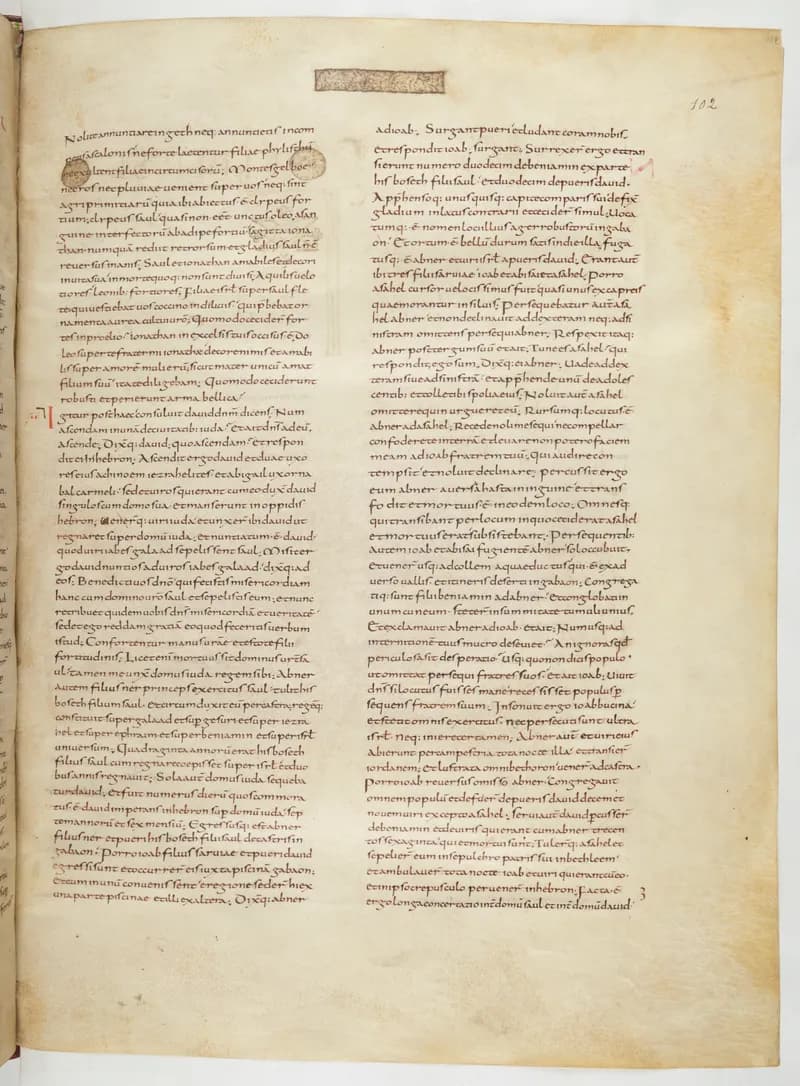 102
Nolite annuntiare in geth neq: annuncietis incom
ascalonis neforte laetentur filiae phylisthi
ultent filiae incircumcisorū; Montes gelboe
nec ros nec pluviae ueniant super uos neq: sint
agri primitiarū quia ibi abiectus ē clypeus for
tium; clypeus saul quasi non eēt unctus oleo, asan
guine interfectorū abadipe fortiū sagitta iona
than numquā rediit retrorsum et gladius saul nē
reuersus inanis; Saul et ionathan amabiles etdecori
inuitasua inmorte quoq: non sunt diuisi; Aquilis uelo
tiores leonib: fortiores; Filiae isrl super saul fle
te qui uestiebat uos coccino indiliuis qui p̄bebat or
namenta aurea cultui urō; Quomodo cecider̄ for
tes inproelio; ionathan in excelsis tuis occisus ē; Do
leo super te frater mi ionatha decore nimis et amabi
lis super amorē mulierū; sicut mater unicū amat
filium suū ita ted iligebam; Quomodo ceciderunt
robusti et perierunt arma bellica;
Igitur post haec consuluit dauid dnm̄ dicens; Num
ascendam inunā deciuitatib: iuda; et ait dn̄s adeū,
ascende; Dixq: dauid; quo ascendam; et respon
dit ei Inhebron; Ascendit ergo dauid et duae uxo
res eius achinoem iezrahelites et abigail uxor na
bal carmeli; sed et uiros qui erant cum eo dux dauid
singulos cum domo sua; et manserunt in oppidis
hebron; uenerq: uiri iuda et unxer̄ ibi dauid ut
regnaret super domū iuda; et nuntiatum ē dauid
quod uiri iabes galaad sepelissent saul; Misit er
go dauid nuntios ad uiros iabes galaad; dixq: ad
eos; Benedicti uos dn̄o qui fecistis misericordiam
hanc cum domino urō saul et sepelistis eum; et nunc
retribuet quidem uobis dn̄s misericordiā et ueritatē
sed et ego reddam gratiā eo quod feceritis uerbum
istud; Confortentur manus urae et estote filii
fortitudinis; Licet enī mortuus sit dominus ur̄ sa
ul tamen me unx̄ domus iuda regem sibi; Abner
autem filius ner princeps exercitus saul tulit his
boseth filium saul et circumduxit eū per castra, regēq:
constituit super galaad et sup̄ gesuri et super iezra
hel et super ephraim et super beniamin et super isrl
uniuersum; Quadraginta annorū erat hisboseth
filius saul cum regnare coepisset super isrl et duo
bus annis regnauit; Sola aut̄ domus iuda sequeba
tur dauid; et fuit numerus dierū quos commora
tus ē dauid imperans inhebron sup̄ domū iuda; sep
tem annorū et sex mensiū; Egressusq: est abner
filius ner et pueri hisboseth filii saul de castris in
gabaon; Porro ioab filius saruiae et pueri dauid
egressi sunt et occurrer̄ eis iuxta piscinā gabaon;
Et cum inunū conuenissent eregione seder̄ hi ex
una parte piscinae et illi ex altera; Dixq: abner
ad ioab; Surgant pueri et ludant coram nobis;
et respondit ioab; surgant; Surrexer̄ ergo et tran
sierunt numero duodecim debeniamin exparte
hisboseth filii saul; et duodecim de pueris dauid;
Apphensoq: unusquisq: capite comparis sui defix̄
gladium in latus contrarii et cecider̄ simul; Uoca
tumq: ē nomen loci illius ager robustorū ingaba
on; Et ortum ē bellū durum satis in die illa; fuga
tusq: ē abner et uiri isrl a pueris dauid; Erant aut̄
ibi tres filii saruiae ioab et abisai et asahel; Porro
asahel cursor uelocissimus fuit quasi unus ex capreis
quae morantur in siluis; Persequebatur aut̄ asa
hel abner et non declinauit ad dexteram neq: adsi
nistram omittens persequi abner; Respexit itaq:
abner post tergum suū et ait; Tu ne es asahel; qui
respondit; ego sum; Dixq: ei abner; Uade ad dex
teram siue ad sinistrā; et apphende unū de adoles
centib: et tolle tibi spolia eius; Noluit aut̄ asahel
omittere quin urgueret eū; Rursumq: locutus ē
abner ad asahel; Recede noli me sequi ne compellar
confodere te in terrā et leuare non potero faciem
meam ad ioab fratrem tuū; Qui audire con
tempsit et noluit declinare; percussit ergo
eum abner auersa hasta in inguine et trans
fodit et mortuus ē in eodem loco; Omnesq:
qui transibant per locum in quo ceciderat asahel
et mortuus erat subsistebant; Persequentib:
autem ioab et abisai fugientē abner sol occubuit;
et uener̄ usq: ad collem aquaeductus qui ē ex ad
uerso uallis et itineris deserti ingabaon; Congrega
tiq: sunt filii beniamin ad abner; et conglobati in
unum cuneum steter̄ in summitate tumuli unius;
Et exclamauit abner ad ioab et ait; Num usq: ad
internitionē tuus mucro deseuiet; An ignoras qđ
periculosa sit desperatio; usq: quo non dicis populo
ut omittat persequi fratres suos; et ait ioab; Uiuit
dn̄s si locutus fuisses mane recessisset populus p̄
sequens fratrem suum; Insonuit ergo ioab bucina
et stetit omnis exercitus; nec persecuti sunt ultra
isrl; neq: iniere certamen; Abner aut̄ et uiri eius
abierunt per campestria tota nocte illa; et transier̄
iordanem; et lustrata omni bethoron uener̄ ad castra.
Porro ioab reuersus omisso abner congregauit
omnem populū et defuer̄ de pueris dauid decem et
nouem uiri excepto asahel; serui aut̄ dauid p̄cusser̄
de beniamin et de uiris qui erant cum abner trecen
tos sexaginta; qui et mortui sunt; Tulerq: asahel et
sepelier̄ eum in sepulchro patris sui in bethleem
et ambulauer̄ tota nocte ioab et uiri qui erant cū eo;
et in ipso crepusculo peruener̄ inhebron; Facta ē
ergo longa concertatio int̄ domū saul et int̄ domū dauid;